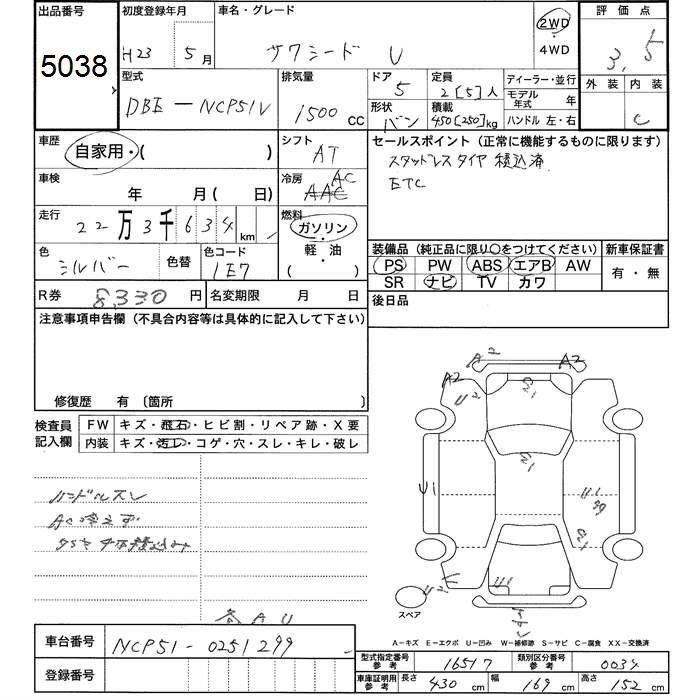 出品番号 初度登録年月 車名・グレード 評価点
5038 H23 5月 サクシード U 2WD 4WD 3.5
外装 内装
C
型式 排気量 ドア 定員 ディーラー・並行
DBE-NCP51V 1500CC 5 2[5]人 モデル年式 年
形状 積載 ハンドル 左・右
バン 450[250]kg
車歴 シフト セールスポイント(正常に機能するものに限ります)
自家用・( ) AT スタッドレスタイヤ 積込済
車検 冷房 AC ETC
年 月( 日) AAC
走行 22万3千634km 燃料 ガソリン・軽・油( )
色 シルバー 色替 色コード 1E7
装備品(純正品に限り○をつけてください) 新車保証書
PS PW ABS エアB AW 有・無
SR ナビ TV カワ
R券 8,330円 名変期限 月 日 後日品
注意事項申告欄(不具合内容等は具体的に記入して下さい)
修復歴 有〔箇所
A2 A2
A2
U2
検査員記入欄 FW キズ・飛石・ヒビ割・リペア跡・X要
内装 キズ・汚レ・コゲ・穴・スレ・キレ・破レ
ハンドルスレ U1 U1
AC冷えず
U1
スペア
各AU
A-キズ E-エクボ U-凹み W-補修跡 S-サビ C-腐食 XX-交換済
車台番号 NCP51-0251299
型式指定番号 参考 16517 類別区分番号 参考 0034
登録番号
車庫証明用 参考 長さ 430cm 幅 169cm 高さ 152cm